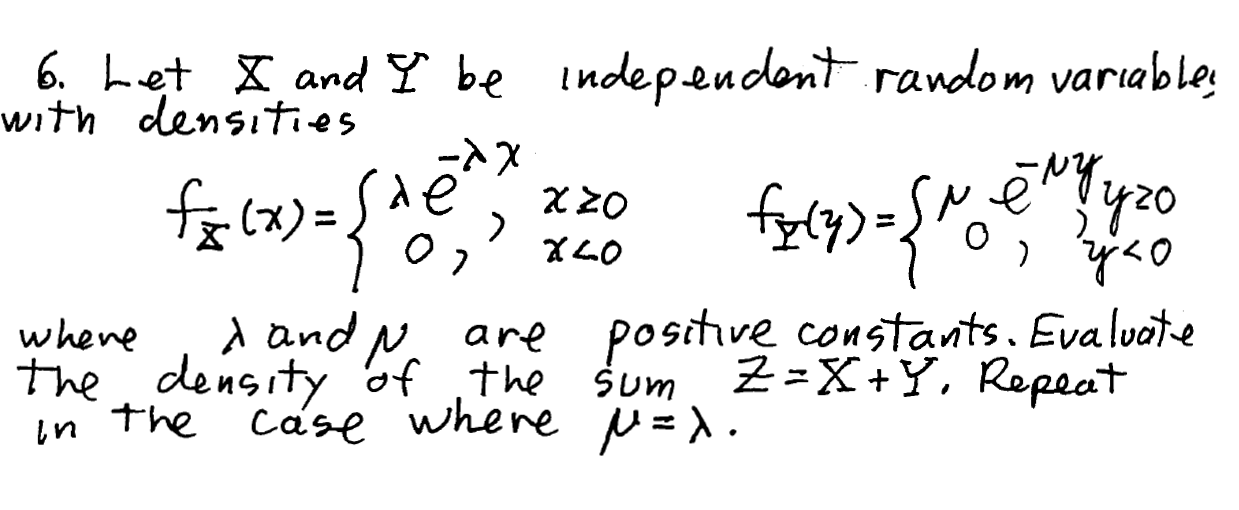 6. Let X and Y be independent random variables
with densities
f_X(x) = { λe^{-λx}, x≥0
0, x<0
f_Y(y) = { μe^{-μy}, y≥0
0, y<0
where λ and μ are positive constants. Evaluate
the density of the sum Z = X + Y. Repeat
in the case where μ = λ.